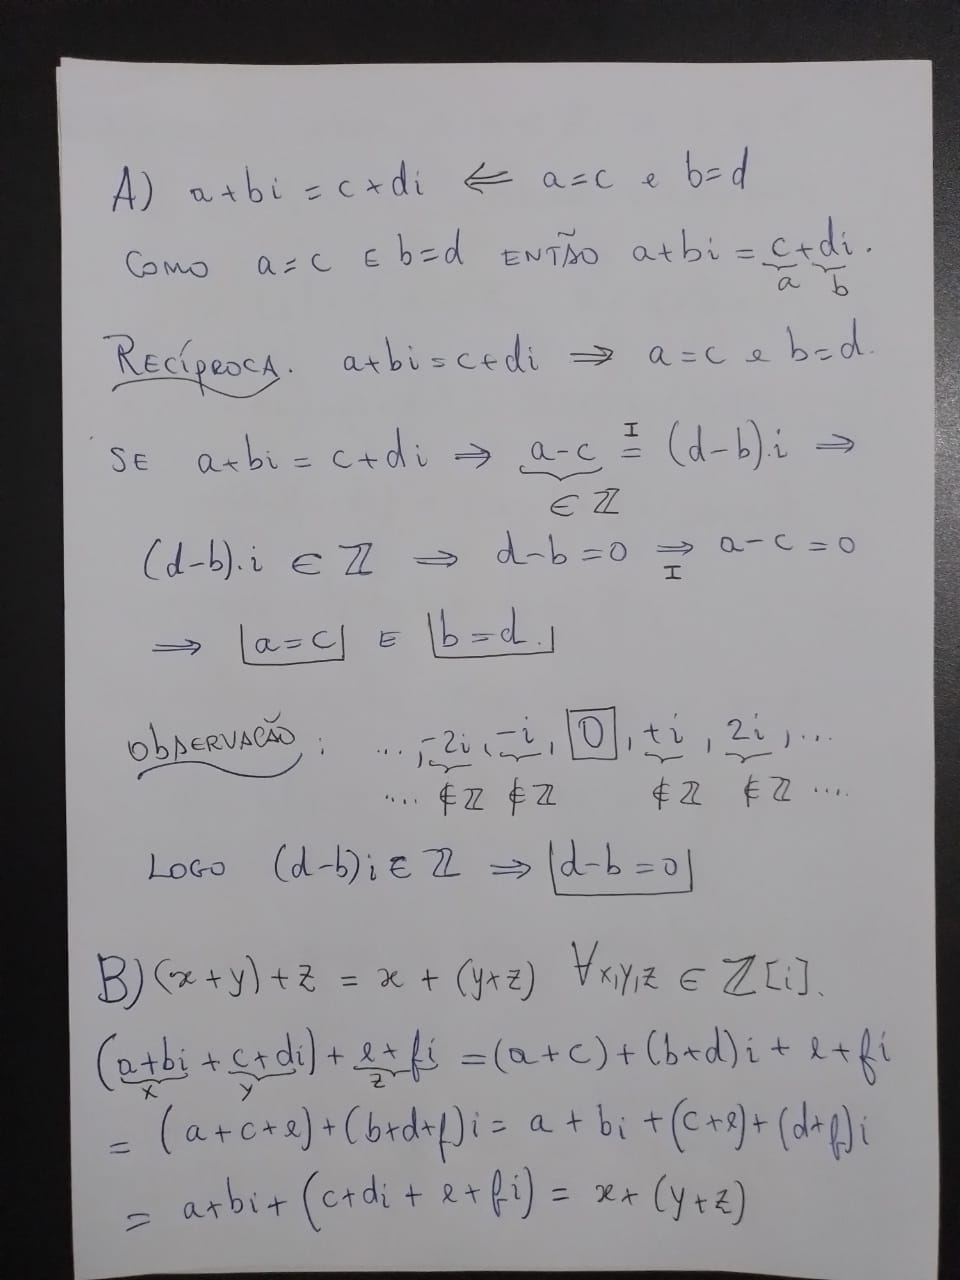 A) a+bi = c+di ⇐ a=c e b=d
COMO a=c E b=d ENTÃO a+bi = c+di.
a b
RECÍPROCA. a+bi=c+di ⇒ a=c e b=d.
SE a+bi = c+di ⇒ a-c = (d-b).i ⇒
I
∈ ℤ
(d-b).i ∈ ℤ ⇒ d-b=0 ⇒ a-c=0
I
⇒ a=c E b=d.
ObSERVAÇÃO : ..., -2i, -i, 0, +i, 2i, ...
.... ∉ℤ ∉ℤ ∉ℤ ∉ℤ ....
LOGO (d-b)i ∈ ℤ ⇒ d-b=0
B) (x+y)+z = x + (y+z) ∀x,y,z ∈ ℤ[i].
(a+bi + c+di) + e+fi = (a+c)+(b+d)i + e+fi
x y z
= (a+c+e)+(b+d+f)i = a + bi +(c+e)+(d+f)i
= a+bi+(c+di + e+fi) = x+(y+z)